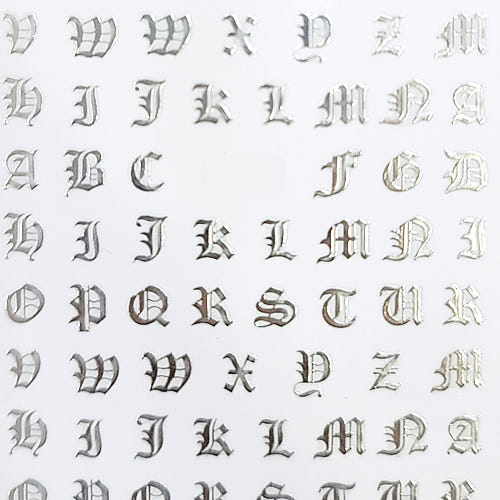 V W W X Y Z M
H I J K L M N A
A B C F G D
H I J K L M N I
O P Q R S T U R
V W W X Y Z M
H I J K L M N A
O P Q R S T U R